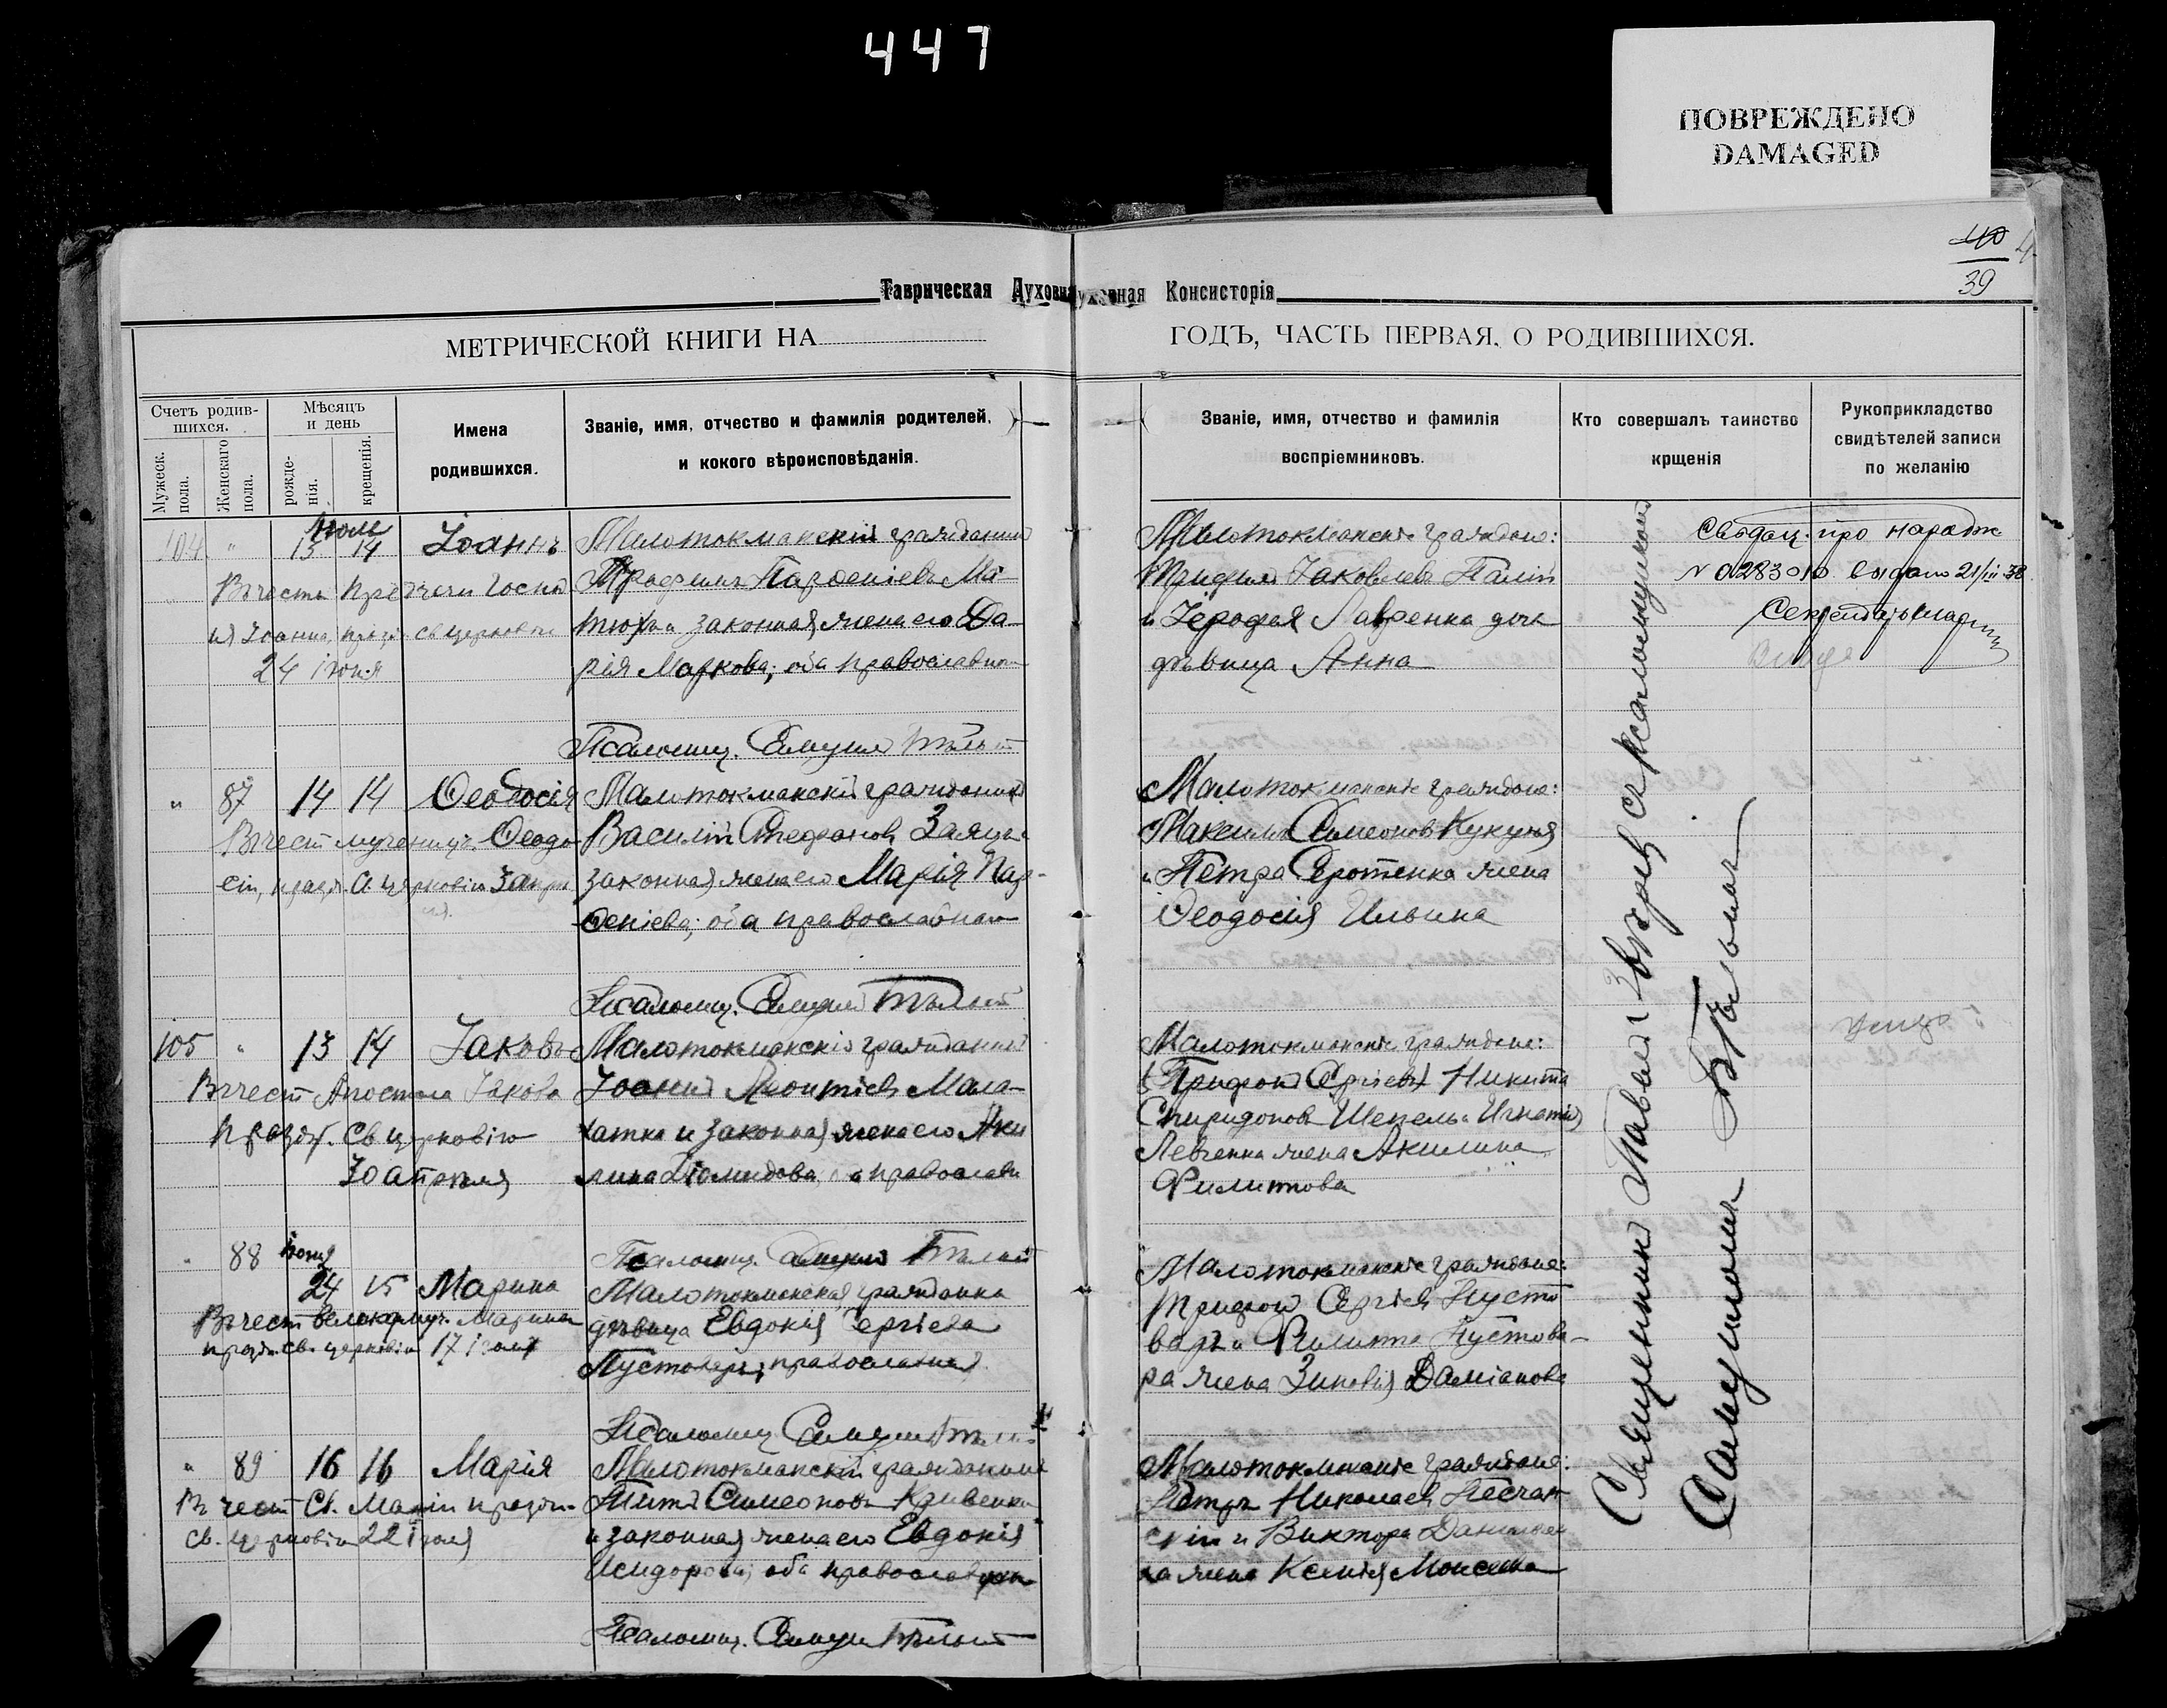 447
ПОВРЕЖДЕНО
DAMAGED
40
39
Таврическая Духовная Консисторія
МЕТРИЧЕСКОЙ КНИГИ НА ГОДЪ, ЧАСТЬ ПЕРВАЯ, О РОДИВШИХСЯ.
Счетъ родив-
шихся.
Мужеск. пола.
Женскаго пола.
Мѣсяцъ
и день
рожде-
нія.
крещенія.
Имена
родившихся.
Званіе, имя, отчество и фамилія родителей,
и кокого вѣроисповѣданія.
Званіе, имя, отчество и фамилія
воспріемниковъ.
Кто совершалъ таинство
крщенія
Рукоприкладство
свидѣтелей записи
по желанію
104 " 13 14 Іоаннъ
Въ честь Предтечи Госпо
ня Іоанна, празд. св церковію
24 іюня
Малотокмакскій гражданинъ
законная жена его Да-
рія Маркова; оба православные
Псаломщ. Самуилъ Бѣлый
Малотокмакскіе граждане:
Іаковлевъ
и Іерофея Лавренка дочь
дѣвица Анна
Свѣдоц. про народж
N 0283010 выдано 21/III 38
" 87 14 14 Ѳеодосія
Въ чест мученицы Ѳеодо
сіи, празд. св. церковію
Малотокмакскій гражданинъ
Василій Стефановъ Заяцъ и
законная жена его Марія Пар-
ѳеніева; оба православные
Псаломщ. Самуилъ Бѣлый
Малотокмакскіе граждане:
Максимъ Симеоновъ Кукуня
и Петра Сиротенка жена
Ѳеодосія Ильина
105 " 13 14 Іаковъ
Въ чест Апостола Іакова
празд. св церковію
30 апрѣля
Малотокмакскій гражданинъ
Іоаннъ Леонтіевъ Мала-
хатка и законная жена его Аки
лина Діомидова, оба православн
Псаломщ. Самуилъ Бѣлый
Малотокмакскіе граждане:
Никита
Спиридоновъ Шепель и Игнатія
Левченка жена Акилина
Филиппова
" 88 іюня
24 15 Марина
Въ чест великомуч. Марины
празд. св. церковію 17 іюля
Малотокмакская гражданка
дѣвица Евдокія Сергіева
Пустоваръ, православная
Псаломщ. Самуилъ Бѣлый
Малотокмакскіе граждане:
Трифонъ Сергіевъ Пусто
варъ и Филиппа Пустова-
ра жена Зиновія Даміанова
" 89 16 16 Марія
Въ чест св. Маріи празд.
св. церковію 22 іюля
Малотокмакскій гражданинъ
Титъ Симеоновъ Кривенко
и законная жена его Евдокія
Исидорова; оба православные
Псаломщ. Самуилъ Бѣлый
Малотокмакскіе граждане:
Петръ Николаевъ Песчан
скій и Виктора Данилен
ка жена Ксенія Моисеева
Священникъ Павелъ Звѣревъ съ псаломщикомъ
Самуиломъ Бѣлымъ